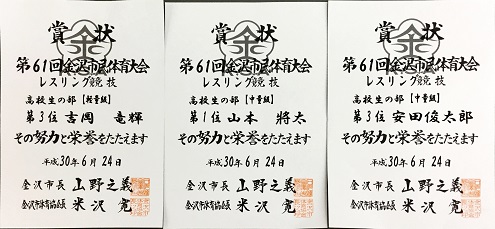 賞状
第61回金沢市民体育大会
レスリング競技
高校生の部【軽量級】
第3位 吉岡 竜輝
その努力と栄誉をたたえます
平成30年6月24日
金沢市長 山野之義
金沢市体育協会長 米沢寛
賞状
第61回金沢市民体育大会
レスリング競技
高校生の部【中量級】
第1位 山本 將太
その努力と栄誉をたたえます
平成30年6月24日
金沢市長 山野之義
金沢市体育協会長 米沢寛
賞状
第61回金沢市民体育大会
レスリング競技
高校生の部【中量級】
第3位 安田俊太郎
その努力と栄誉をたたえます
平成30年6月24日
金沢市長 山野之義
金沢市体育協会長 米沢寛